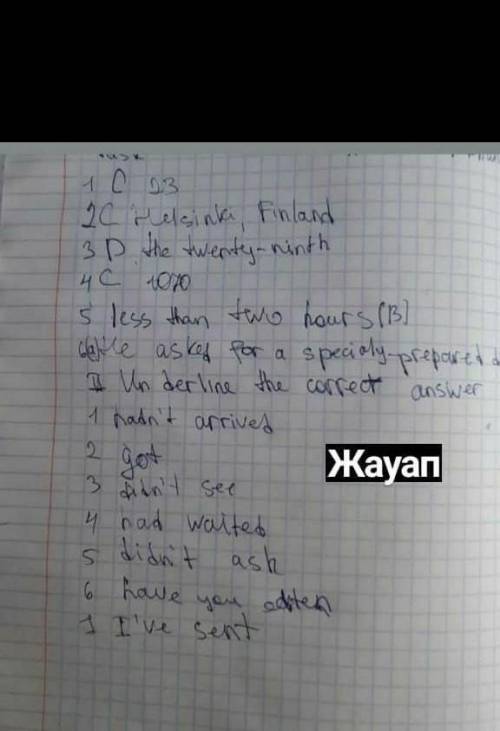 Task
1 C 23
2C Helsinki, Finland
3 D the twenty-ninth
4 C 1070
5 less than two hours (B)
He asked for a specialy-prepared
II Underline the correct answer
1 hadn't arrived
2 got
Жауап
3 didn't see
4 had waited
5 didn't ask
6 have you eaten
1 I've sent